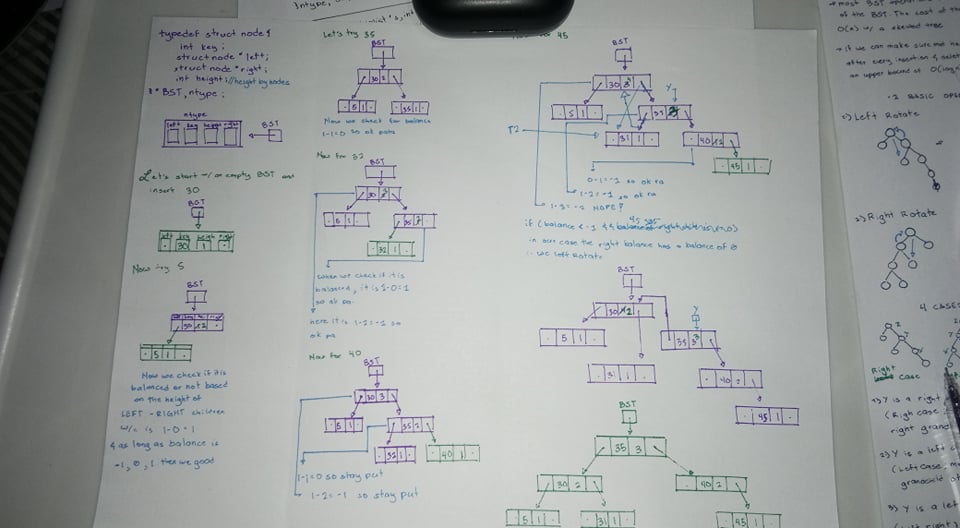 typedef struct node {
int key;
struct node * left;
struct node * right;
int height; //height by nodes
} * BST, ntype;
ntype
left key height right
BST
Let's start w/ an empty BST and
insert 30
BST
left key heigh right
30 1
Now try 5
BST
30 2
5 1
Now we check if it is
balanced or not based
on the height of
LEFT - RIGHT children
w/c is 1-0=1
& as long as balance is
-1, 0, 1 then we good
Let's try 35
BST
30 2
5 1
35 1
Now we check for balance
1-1=0 so ok pa
Now for 32
BST
30 3
5 1
35 2
32 1
when we check if it is
balanced, it is 1-0=1
so ok pa.
here it is 1-2=-1 so
ok pa
Now for 40
BST
30 3
5 1
35 2
32 1
40 1
1-1=0 so stay put
1-2=-1 so stay put
45
BST
30
Y
5 1
35
T2
31 1
40 2
45 1
0-1=-1 so ok ra
1-2=-1 so ok ra
1-3=-2 NOPE!
if (balance < -1 &&
in our case the right balance has a balance of
∴ we left rotate
BST
30 2
Y
5 1
35 3
31 1
40 2
45 1
BST
35 3
30 2
40 2
5 1
31 1
45 1
most BST
of the BST. The cost of
O(n) w/ a skewed tree
if we can make sure
after every insertion &
an upper bound of O(log
2 BASIC
1) Left Rotate
2) Right Rotate
4 CASES
Right
Case
1) Y is a right
(Right case
right grand
2) Y is a left
(Left Case
3) Y is a left